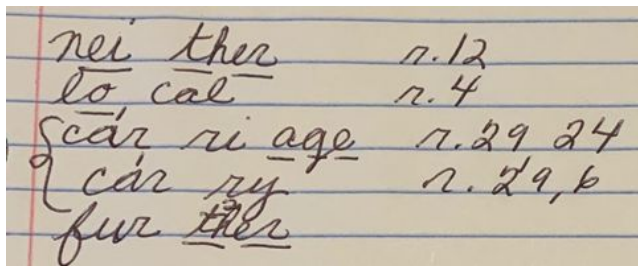 nei ther r.12
lo cal r.4
car ri age r.29, 24
car ry r.29, 6
fur ther